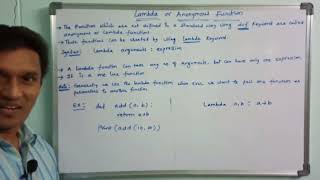 Lambda or Anonymous Function
→ The Functions which are not defined in a standard way using def keyword are called
anonymous or Lambda function.
→ These functions can be created by using lambda keyword.
Syntax: Lambda arguments : expression
→ A lambda function can take any no of arguments, but can have only one expression.
→ It is a one line function
Note: Generally we use the lambda function when ever we want to pass one function as
parameters to another function.
Ex: def add (a, b): Lambda a,b : a+b
return a+b
Print (add (10, 20))